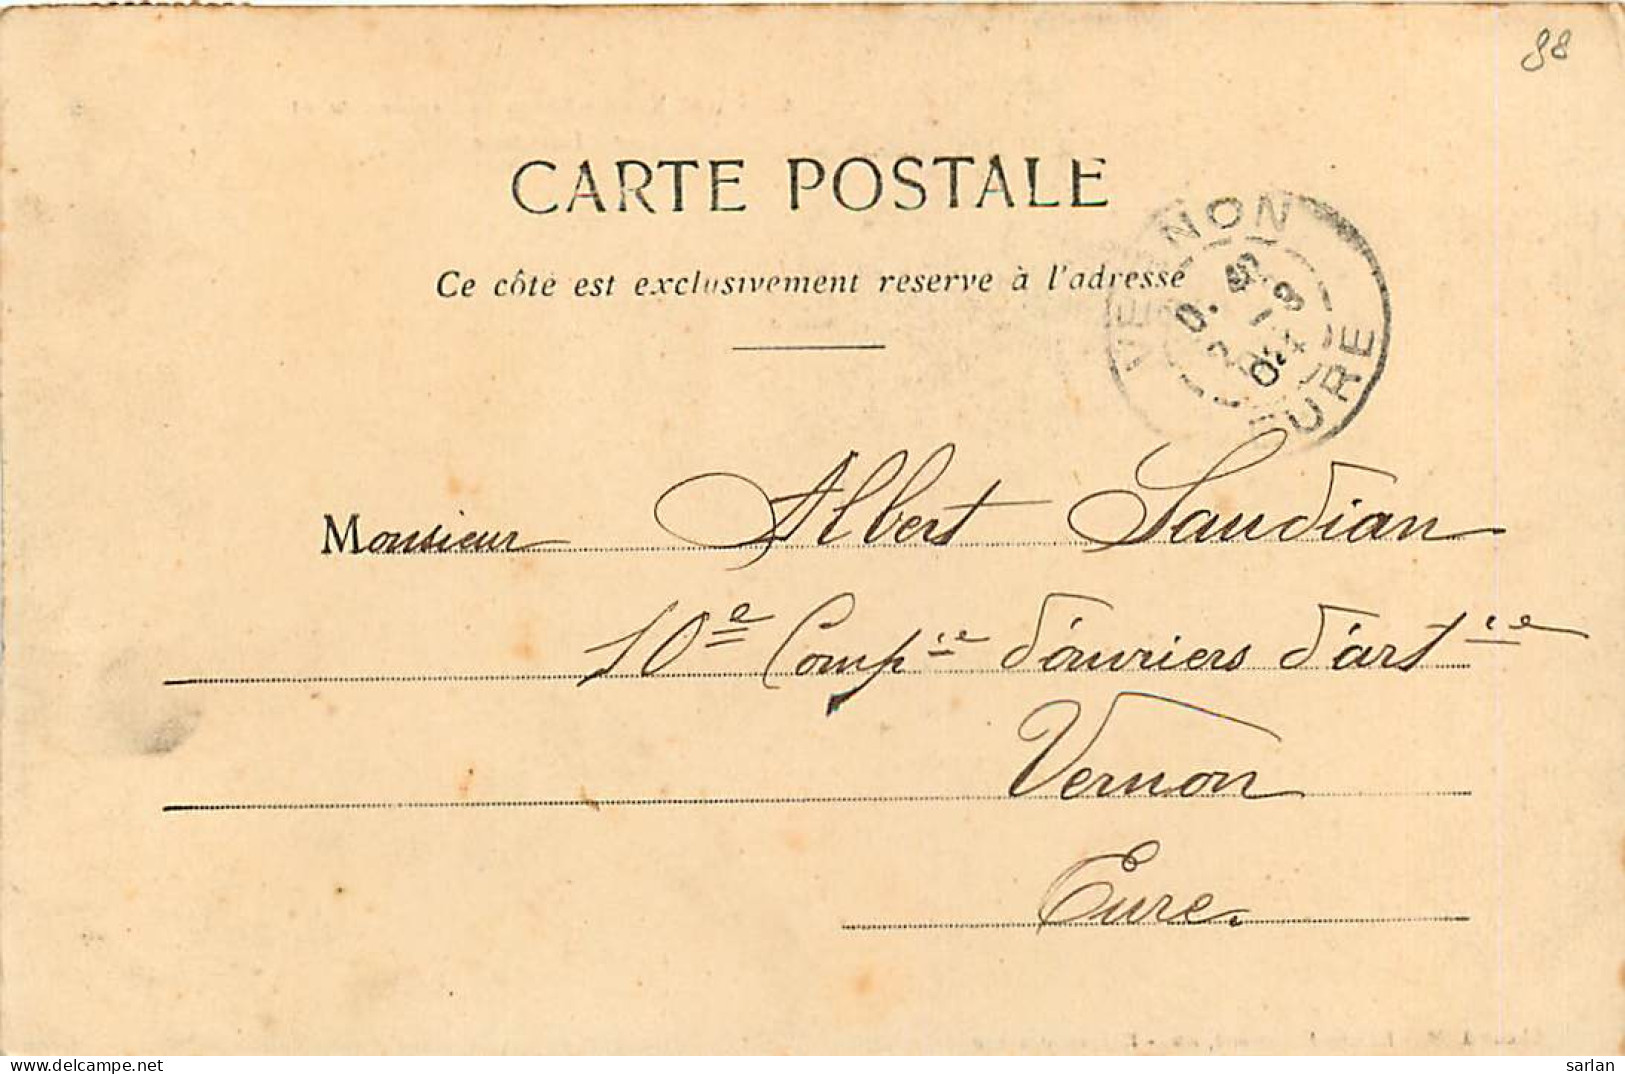 88
CARTE POSTALE
Ce côté est exclusivement reserve à l'adresse
VERNON
EURE
Monsieur Albert Saudian
10e Compie d'ouvriers d'artie
Vernon
Eure.
sarlan